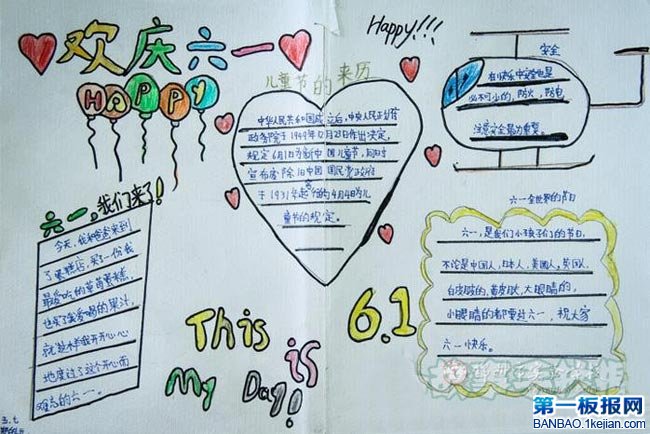 欢庆六一
HAPPY
Happy!!!
儿童节的来历
中华人民共和国成立后,中央人民政府
政务院于1949年12月23日作出决定,
规定6月1日为新中国儿童节,同时
宣布废除旧中国国民党政府
于1931年起的4月4日为儿
童节的规定。
安全
在快乐中安全也是
必不可少的,防火,防电
注意安全最为重要。
六一,我们来了!
今天,我和爸爸来到
了蛋糕店,买了一份我
最爱吃的草莓蛋糕,
也买了我爱喝的果汁,
就这样我开开心心
地度过了这个开心而
难忘的六一。
This is
My Day!
6.1
六一全世界的节日
六一,是我们小孩子们的节日,
不论是中国人,日本人,美国人,英国人,
白皮肤的,黄皮肤,大眼睛的,
小眼睛的都要过六一,祝大家
六一快乐。
第一板报网
BANBAO.1kejian.com